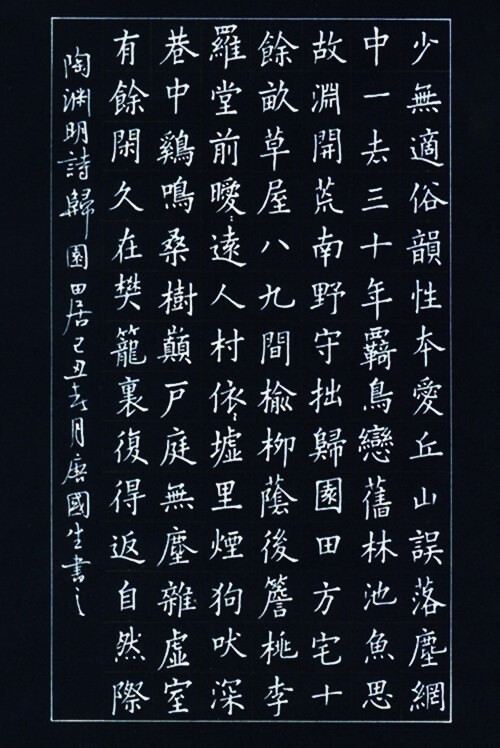 少無適俗韻性本愛丘山誤落塵網
中一去三十年覉鳥戀舊林池魚思
故淵開荒南野守拙歸園田方宅十
餘畝草屋八九間榆柳蔭後簷桃李
羅堂前曖〻遠人村依〻墟里煙狗吠深
巷中鷄鳴桑樹顛戶庭無塵雜虛室
有餘閑久在樊籠裏復得返自然際
陶渊明詩歸園田居己丑月唐國生書之